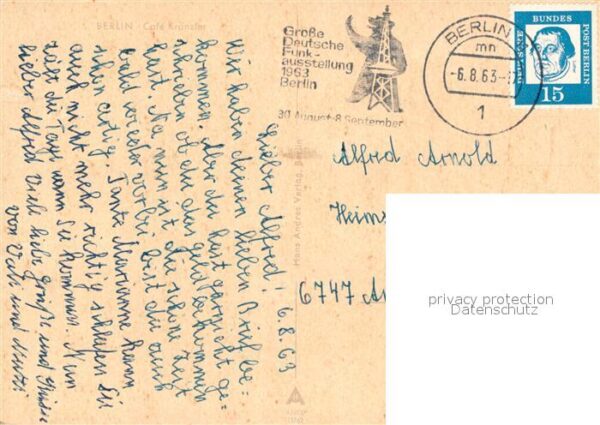 BERLIN - Café Kranzler
Große
Deutsche
Funk-
ausstellung
1963
Berlin
30. August-8. September
BERLIN
mn
-6.8.63-
1
DEUTSCHE
BUNDES
POST BERLIN
15
6.8.63
Lieber Alfred!
Wir haben deinen lieben Brief be=
kommen. Aber du hast garnicht ge=
schrieben ob du das geld bekommen
hast. Na nun ist die schöne Zeit
bald wieder vorbei. bist du auch
schon artig. Tante Marianne kann
auch nicht mehr richtig schlafen Sie
zält die Tage wann Sie kommen. Nun
lieber Alfred viele liebe grüße und Küsse
von Vati und Mutti
Hans Andres Verlag, Berlin
Alfred Arnold
Heims
6747 A
privacy protection
Datenschutz